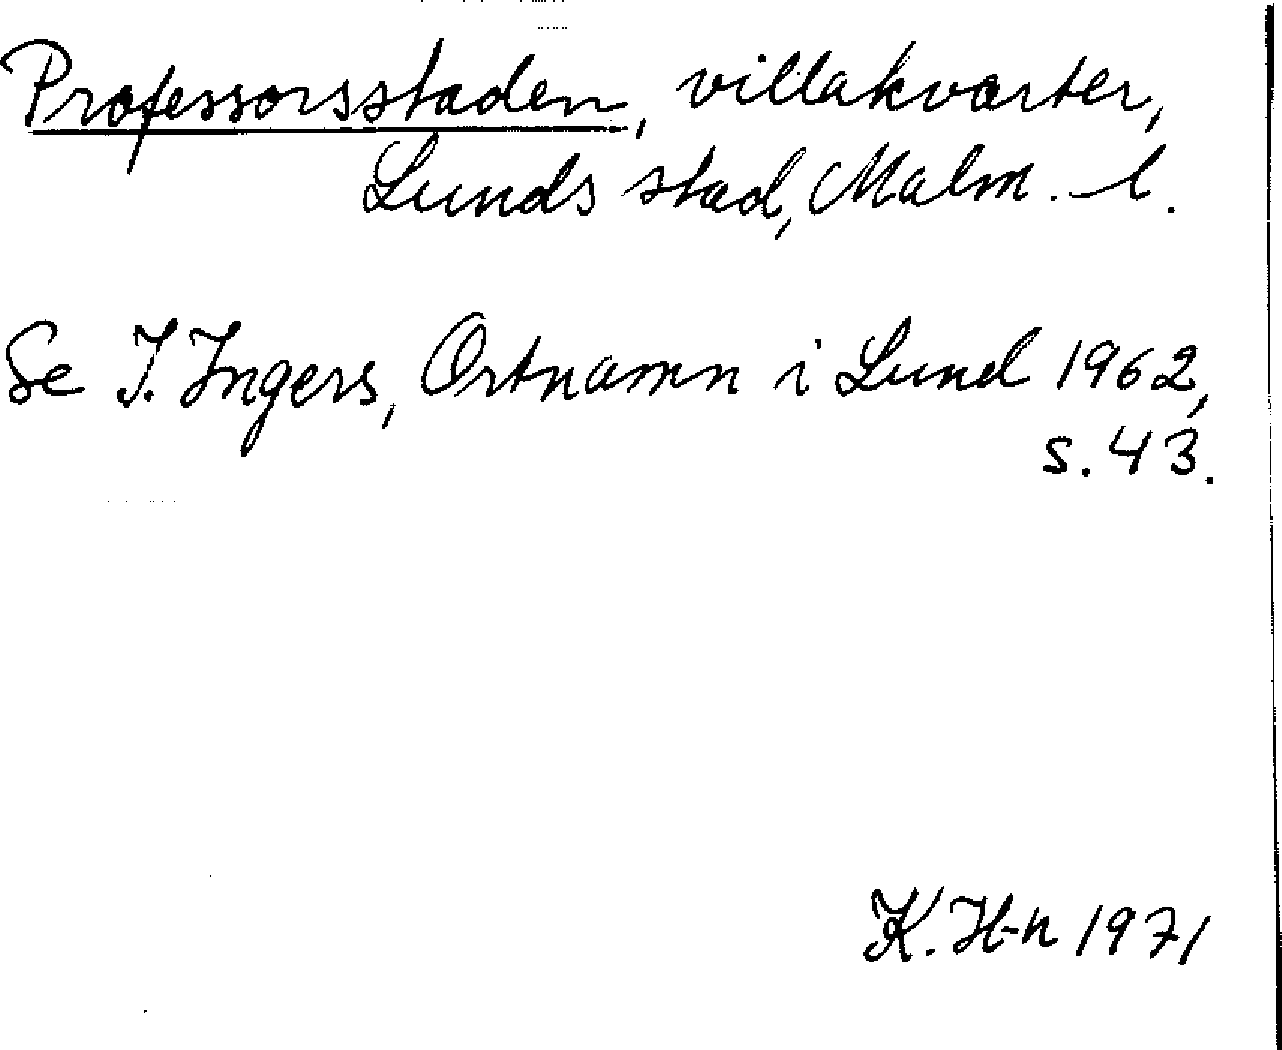 Professorsstaden, villakvarter,
Lunds stad, Malm. l.
Se I. Ingers, Ortnamn i Lund 1962,
s. 43.
K. H-n 1971